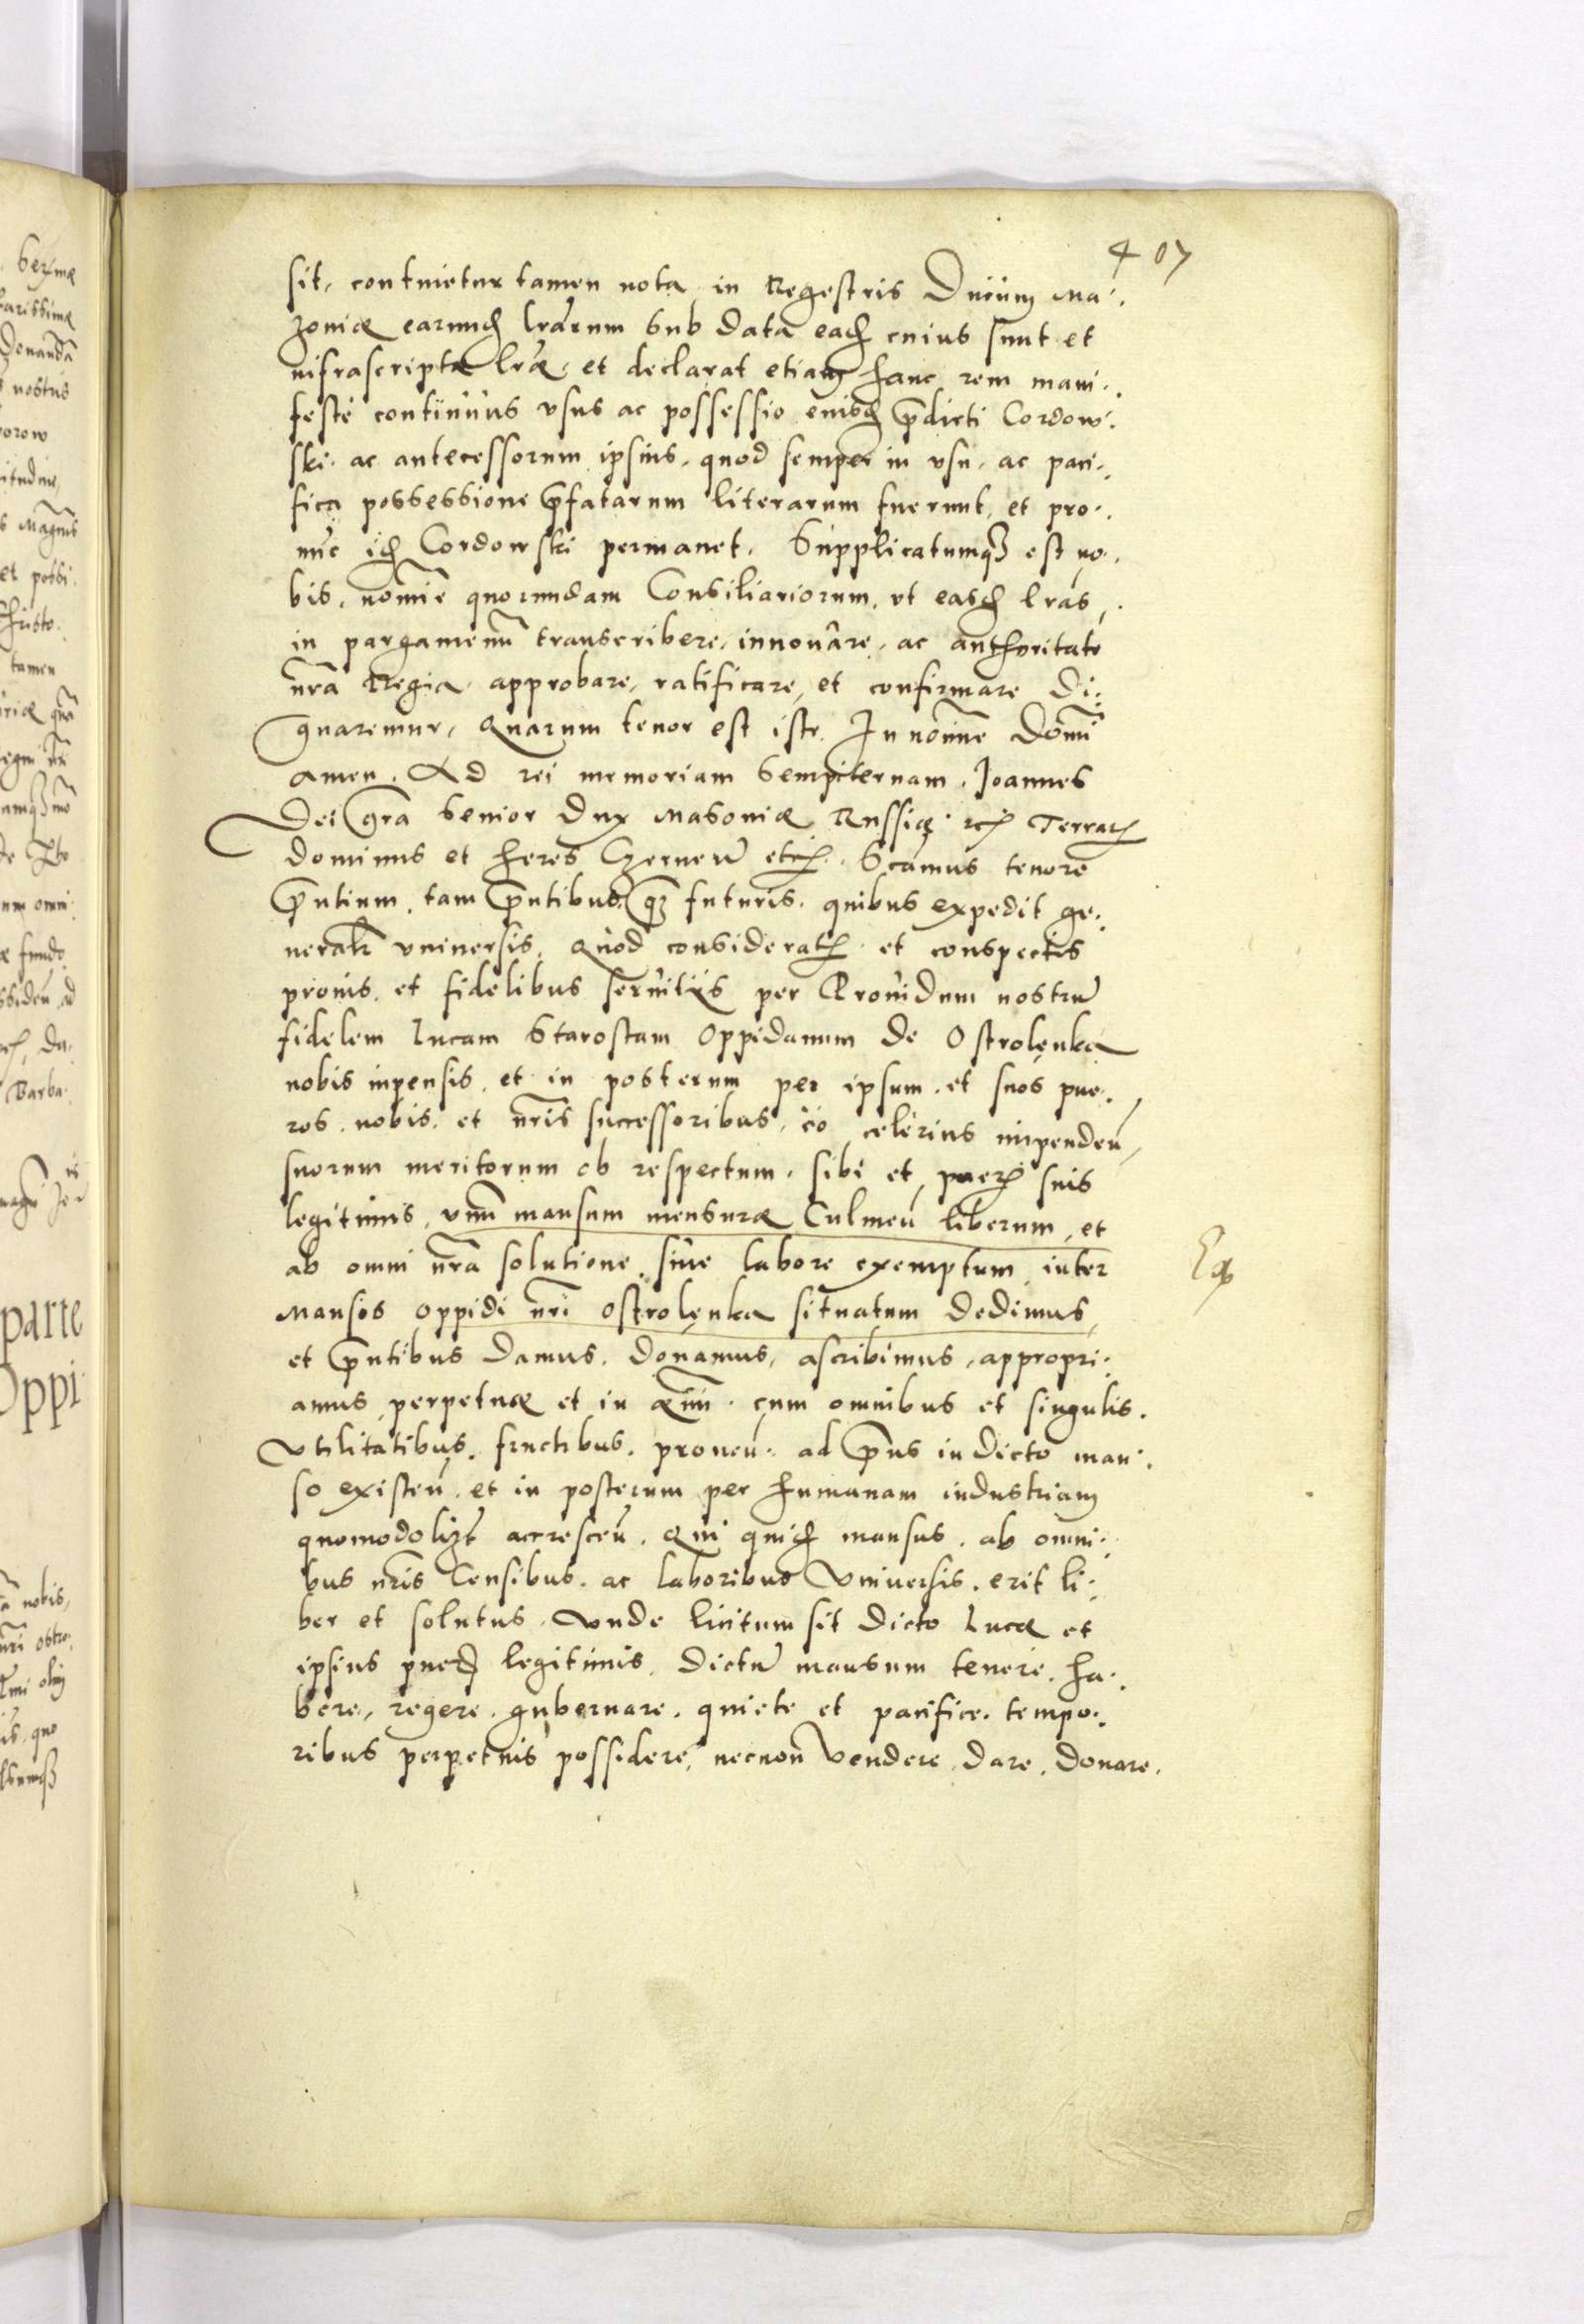 407
sit, continetur tamen nota in Regestris Ducum Ma:
zoniæ earundẽ lrarum sub data eadẽ cuius sunt et
infrascriptæ lræ, et declarat etiam hanc rem mani:
festè continuus vsus ac possessio eiusdẽ prædicti Cordow:
ski. ac antecessorum ipsius, quod semper in vsu, ac paci:
fica possessione præfatarum literarum fuerunt, et pro:
nũc idẽ Cordowski permanet. Supplicatumqꝫ est no:
bis, nomie quorundam Consiliariorum, vt easdẽ lras,
in pargamenũ transcribere, innouare, ac authoritate
nrã Regia approbare, ratificare, et confirmare di:
gnaremur, Quarum tenor est iste. In nomine Domi
amen. Ad rei memoriam sempiternam. Joannes
Dei gra senior Dux Masoniæ Russiæ etc Terrarꝫ
dominus et heres Czerneñ etc. Scamus tenore
pntium, tam pntibus, qꝫ futuris, quibus expedit ge:
neralr vniuersis, Quod consideratꝭ et conspectis
pronis, et fidelibus seruitiis per Prouidum nostrũ
fidelem Lucam Starostam Oppidanum de Ostrolęnka
nobis inpensis, et in posterum per ipsum, et suos pue:
ros, nobis, et nris successoribus, eo celerius inpendeñ,
suorum meritorum ob respectum, sibi et puerꝭ suis
legitimis, vnũ mansum mensuræ Culmeñ liberum, et
ab omni nra solutione, siue labore exemptum, inter
Mansos oppidi nri Ostrolęnka situatum dedimus,
et pntibus damus, donamus, ascribimus, appropri:
amus perpetuæ et in æuũ. cum omnibus et singulis.
Vtilitatibus, fructibus, proueñ. ad pns in dicto man:
so existeñ, et in posterum per humanam industriam
quomodolizt accresceñ. Qui quidẽ mansus, ab omni:
bus nris Censibus, ac laboribus Vniuersis, erit li:
ber et solutus. Vnde licitum sit dicto Lucæ et
ipsius puerꝭ legitimis, dictũ mansum tenere, ha:
bere, regere, gubernare, quiete et pacifice, tempo:
ribus perpetuis possidere, necnon Vendere, dare, donare,